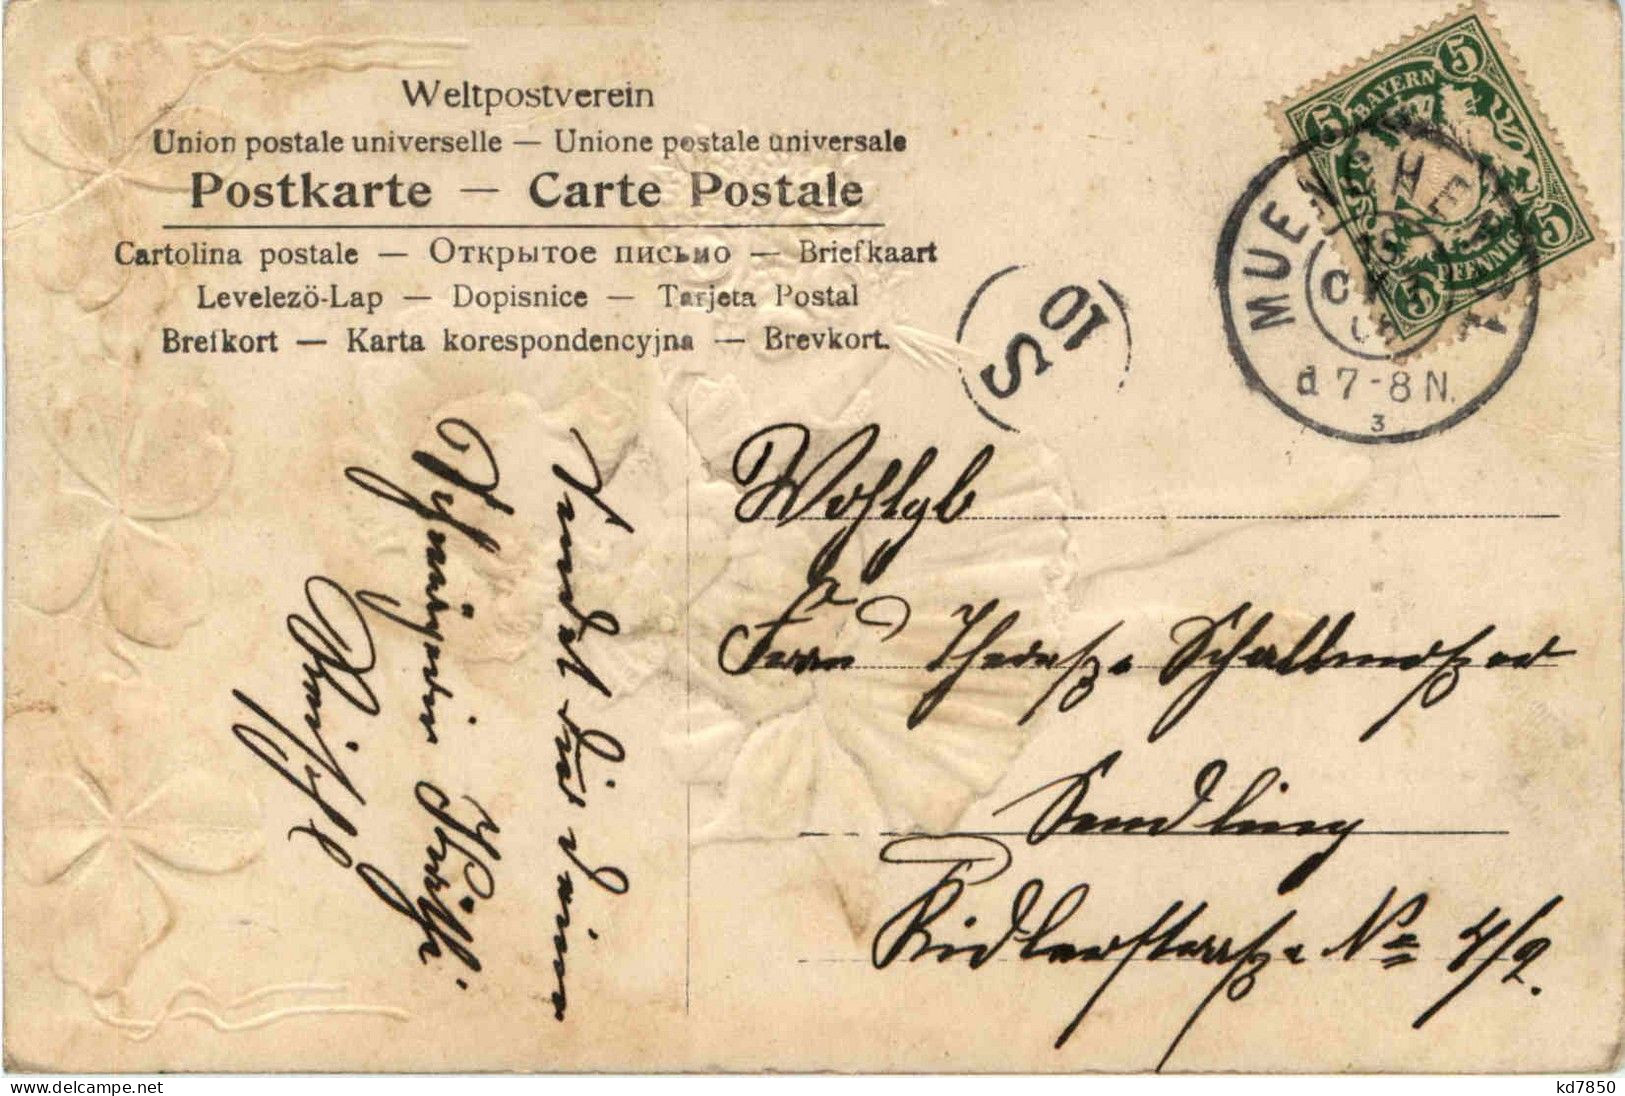 Weltpostverein
Union postale universelle — Unione postale universale
Postkarte — Carte Postale
Cartolina postale — Открытое письмо — Briefkaart
Levelezö-Lap — Dopisnice — Tarjeta Postal
Brefkort — Karta korespondencyjna — Brevkort.
5 BAYERN 5
5 PFENNIG 5
MUENCHEN
d 7-8 N.
3
10
S
Wohlgb
Frau Theres
Sendling
Ridlerstraße No 4/2.
sendet dir deine